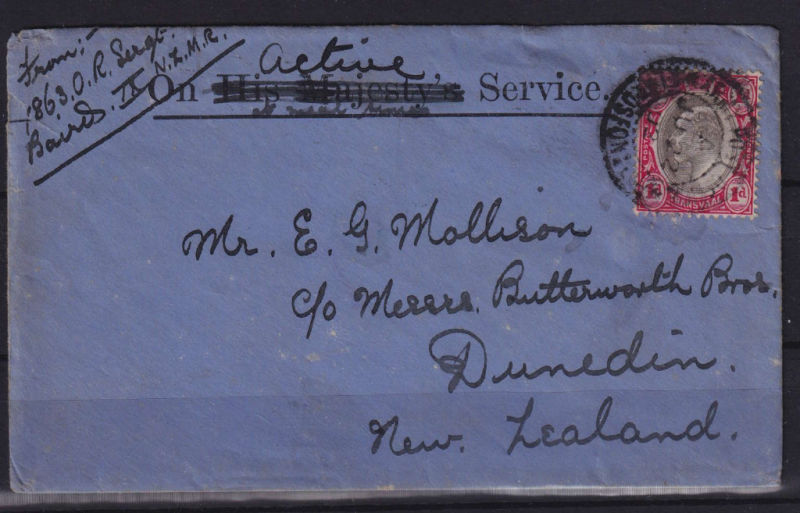 From:-
1863. O. R. Sergt.
Baird. IX N.Z.M.R.
Active
On His Majesty's Service.
Mr. E. G. Mollison
c/o Messrs. Butterworth Bros.
Dunedin.
New. Zealand.
POSTAGE
1d TRANSVAAL 1d